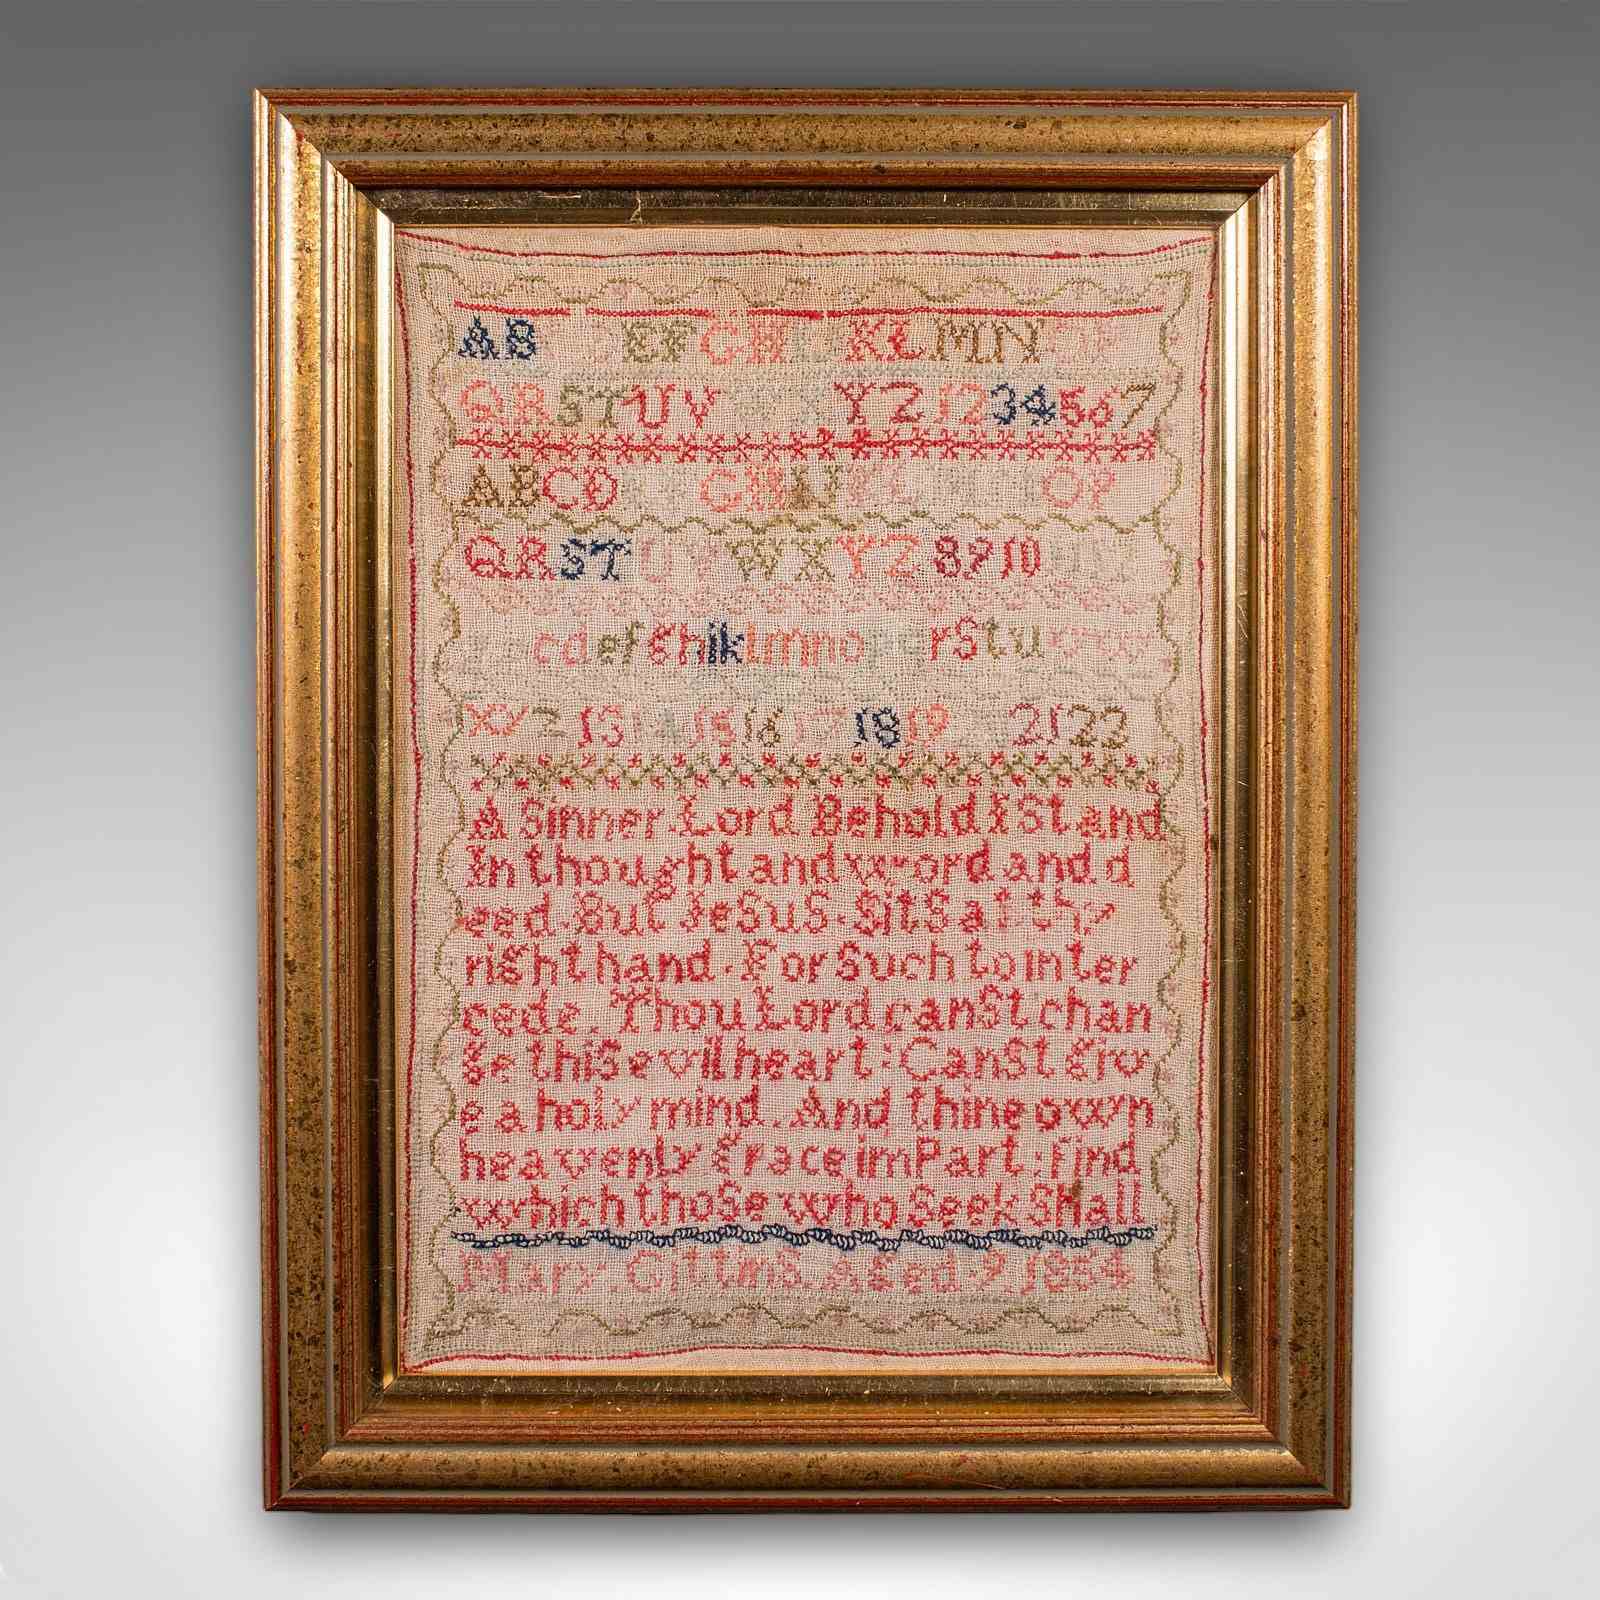 AB EFGHIJKLMNOP
QRSTUVWXYZ1234567
ABCDEFGHIJKLMNOP
QRSTUVWXYZ8910
cdefghiklmnopqrstuvw
xyz13141516171819 2122
A Sinner.Lord Behold I Stand
In thought and word and d
eed.But JeSuS.SitS at thy
right hand.For Such to inter
cede.Thou Lord canSt chan
ge thiS evil heart:CanSt giv
e a holy mind.And thine own
heavenly Grace imPart:find
which thoSe who Seek Shall
Mary.Gittins Aged.9 1854